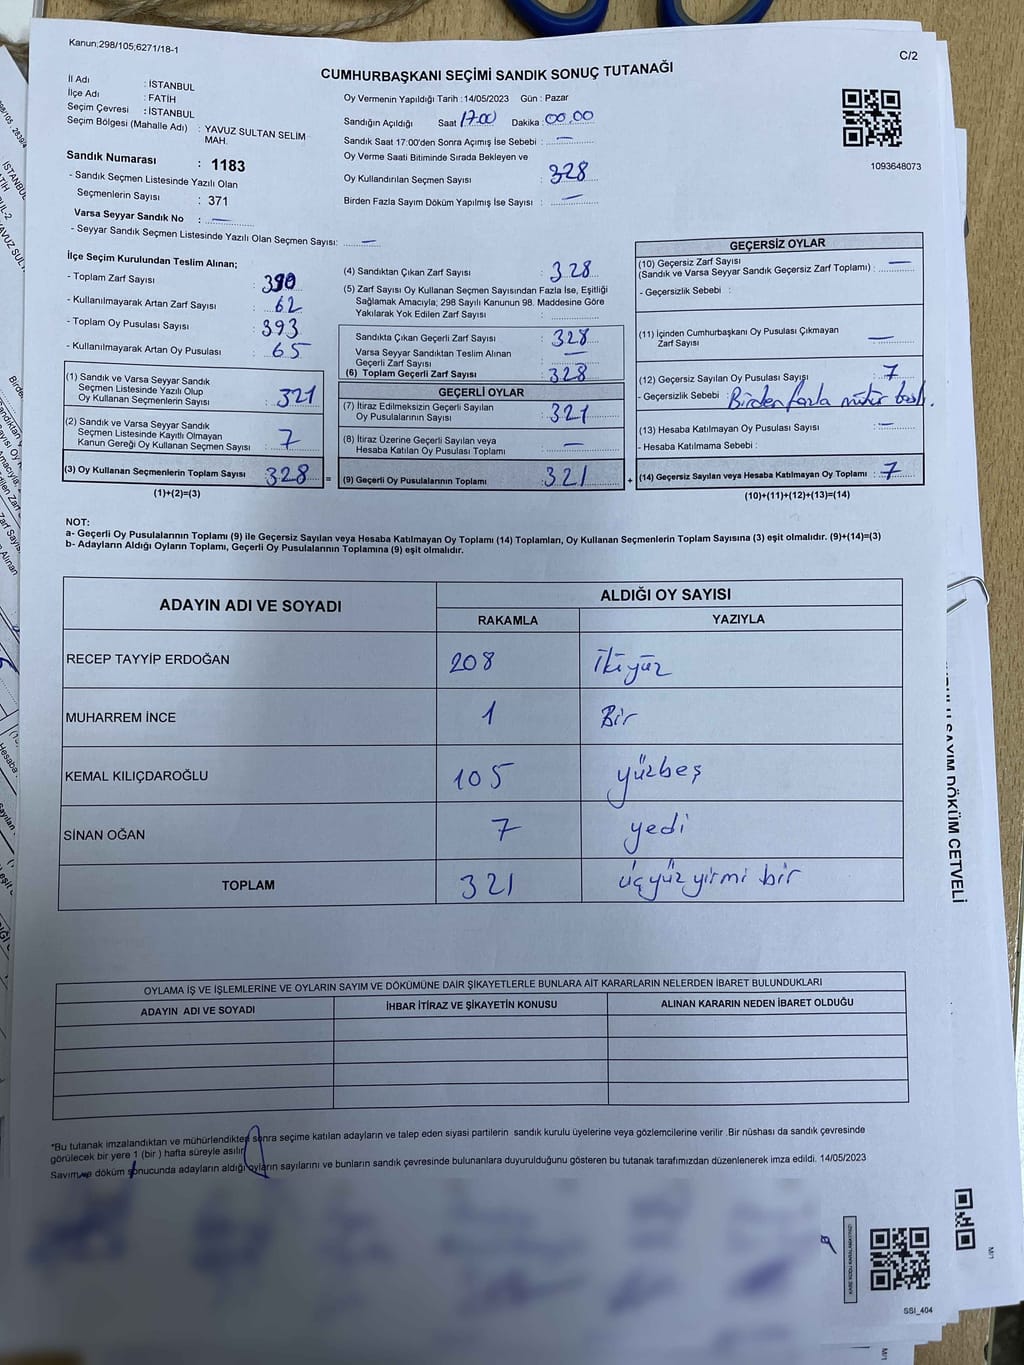 Kanun;298/105;6271/18-1
C/2
CUMHURBAŞKANI SEÇİMİ SANDIK SONUÇ TUTANAĞI
İl Adı : İSTANBUL
İlçe Adı : FATİH
Seçim Çevresi : İSTANBUL
Seçim Bölgesi (Mahalle Adı) : YAVUZ SULTAN SELİM MAH.
Sandık Numarası : 1183
- Sandık Seçmen Listesinde Yazılı Olan
Seçmenlerin Sayısı : 371
Varsa Seyyar Sandık No : —
- Seyyar Sandık Seçmen Listesinde Yazılı Olan Seçmen Sayısı: —
Oy Vermenin Yapıldığı Tarih :14/05/2023 Gün : Pazar
Sandığın Açıldığı Saat 17.00 Dakika : 00.00
Sandık Saat 17:00'den Sonra Açımış İse Sebebi : —
Oy Verme Saati Bitiminde Sırada Bekleyen ve
Oy Kullandırılan Seçmen Sayısı : 328
Birden Fazla Sayım Döküm Yapılmış İse Sayısı : —
1093648073
İlçe Seçim Kurulundan Teslim Alınan;
- Toplam Zarf Sayısı : 390
- Kullanılmayarak Artan Zarf Sayısı : 62
- Toplam Oy Pusulası Sayısı : 393
- Kullanılmayarak Artan Oy Pusulası : 65
(1) Sandık ve Varsa Seyyar Sandık
Seçmen Listesinde Yazılı Olup
Oy Kullanan Seçmenlerin Sayısı : 321
(2) Sandık ve Varsa Seyyar Sandık
Seçmen Listesinde Kayıtlı Olmayan
Kanun Gereği Oy Kullanan Seçmen Sayısı : 7
(3) Oy Kullanan Seçmenlerin Toplam Sayısı : 328
(1)+(2)=(3)
(4) Sandıktan Çıkan Zarf Sayısı : 328
(5) Zarf Sayısı Oy Kullanan Seçmen Sayısından Fazla İse, Eşitliği
Sağlamak Amacıyla; 298 Sayılı Kanunun 98. Maddesine Göre
Yakılarak Yok Edilen Zarf Sayısı :
Sandıkta Çıkan Geçerli Zarf Sayısı : 328
Varsa Seyyar Sandıktan Teslim Alınan
Geçerli Zarf Sayısı : —
(6) Toplam Geçerli Zarf Sayısı : 328
=
GEÇERLİ OYLAR
(7) İtiraz Edilmeksizin Geçerli Sayılan
Oy Pusulalarının Sayısı : 321
(8) İtiraz Üzerine Geçerli Sayılan veya
Hesaba Katılan Oy Pusulası Toplamı : —
(9) Geçerli Oy Pusulalarının Toplamı : 321
+
GEÇERSİZ OYLAR
(10) Geçersiz Zarf Sayısı
(Sandık ve Varsa Seyyar Sandık Geçersiz Zarf Toplamı) : —
- Geçersizlik Sebebi :
(11) İçinden Cumhurbaşkanı Oy Pusulası Çıkmayan
Zarf Sayısı : —
(12) Geçersiz Sayılan Oy Pusulası Sayısı : 7
- Geçersizlik Sebebi : Birden fazla mühür
(13) Hesaba Katılmayan Oy Pusulası Sayısı : —
- Hesaba Katılmama Sebebi :
(14) Geçersiz Sayılan veya Hesaba Katılmayan Oy Toplamı : 7
(10)+(11)+(12)+(13)=(14)
NOT:
a- Geçerli Oy Pusulalarının Toplamı (9) ile Geçersiz Sayılan veya Hesaba Katılmayan Oy Toplamı (14) Toplamları, Oy Kullanan Seçmenlerin Toplam Sayısına (3) eşit olmalıdır. (9)+(14)=(3)
b- Adayların Aldığı Oyların Toplamı, Geçerli Oy Pusulalarının Toplamına (9) eşit olmalıdır.
ADAYIN ADI VE SOYADI ALDIĞI OY SAYISI
RAKAMLA YAZIYLA
RECEP TAYYİP ERDOĞAN 208 İkiyüz
MUHARREM İNCE 1 Bir
KEMAL KILIÇDAROĞLU 105 yüzbeş
SİNAN OĞAN 7 yedi
TOPLAM 321 üçyüz yirmi bir
OYLAMA İŞ VE İŞLEMLERİNE VE OYLARIN SAYIM VE DÖKÜMÜNE DAİR ŞİKAYETLERLE BUNLARA AİT KARARLARIN NELERDEN İBARET BULUNDUKLARI
ADAYIN ADI VE SOYADI İHBAR İTİRAZ VE ŞİKAYETİN KONUSU ALINAN KARARIN NEDEN İBARET OLDUĞU
*Bu tutanak imzalandıktan ve mühürlendikten sonra seçime katılan adayların ve talep eden siyasi partilerin sandık kurulu üyelerine veya gözlemcilerine verilir .Bir nüshası da sandık çevresinde
görülecek bir yere 1 (bir ) hafta süreyle asılır
Sayım ve döküm sonucunda adayların aldığı oyların sayılarını ve bunların sandık çevresinde bulunanlara duyurulduğunu gösteren bu tutanak tarafımızdan düzenlenerek imza edildi. 14/05/2023
KARE KODU KARALAMAYINIZ!
SSI_404
SAYIM DÖKÜM CETVELİ
M/1
M/1